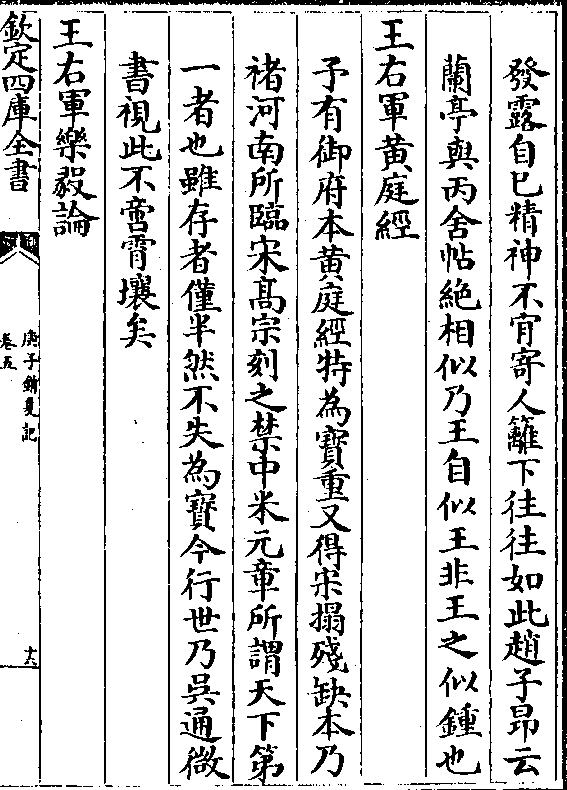 發露自已精神不肯寄人籬下往往如此趙子昂云
蘭亭與丙舍帖絶相似乃王自似王非王之似鍾也
王右軍黄庭經
予有御府本黄庭經特為寳重又得宋搨殘缺本乃
禇河南所臨宋髙宗刻之禁中米元章所謂天下第
一者也雖存者僅半然不失為寳今行世乃吳通微
書視此不啻霄壤矣
王右軍樂毅論
欽定四庫全書
庚子銷夏記
卷五
十六